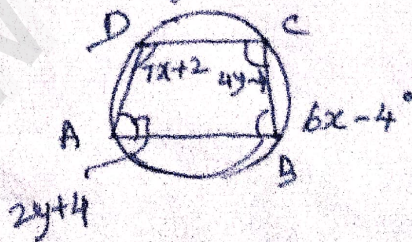 D C
7x+2 4y-4
A 6x-4°
B
2y+4